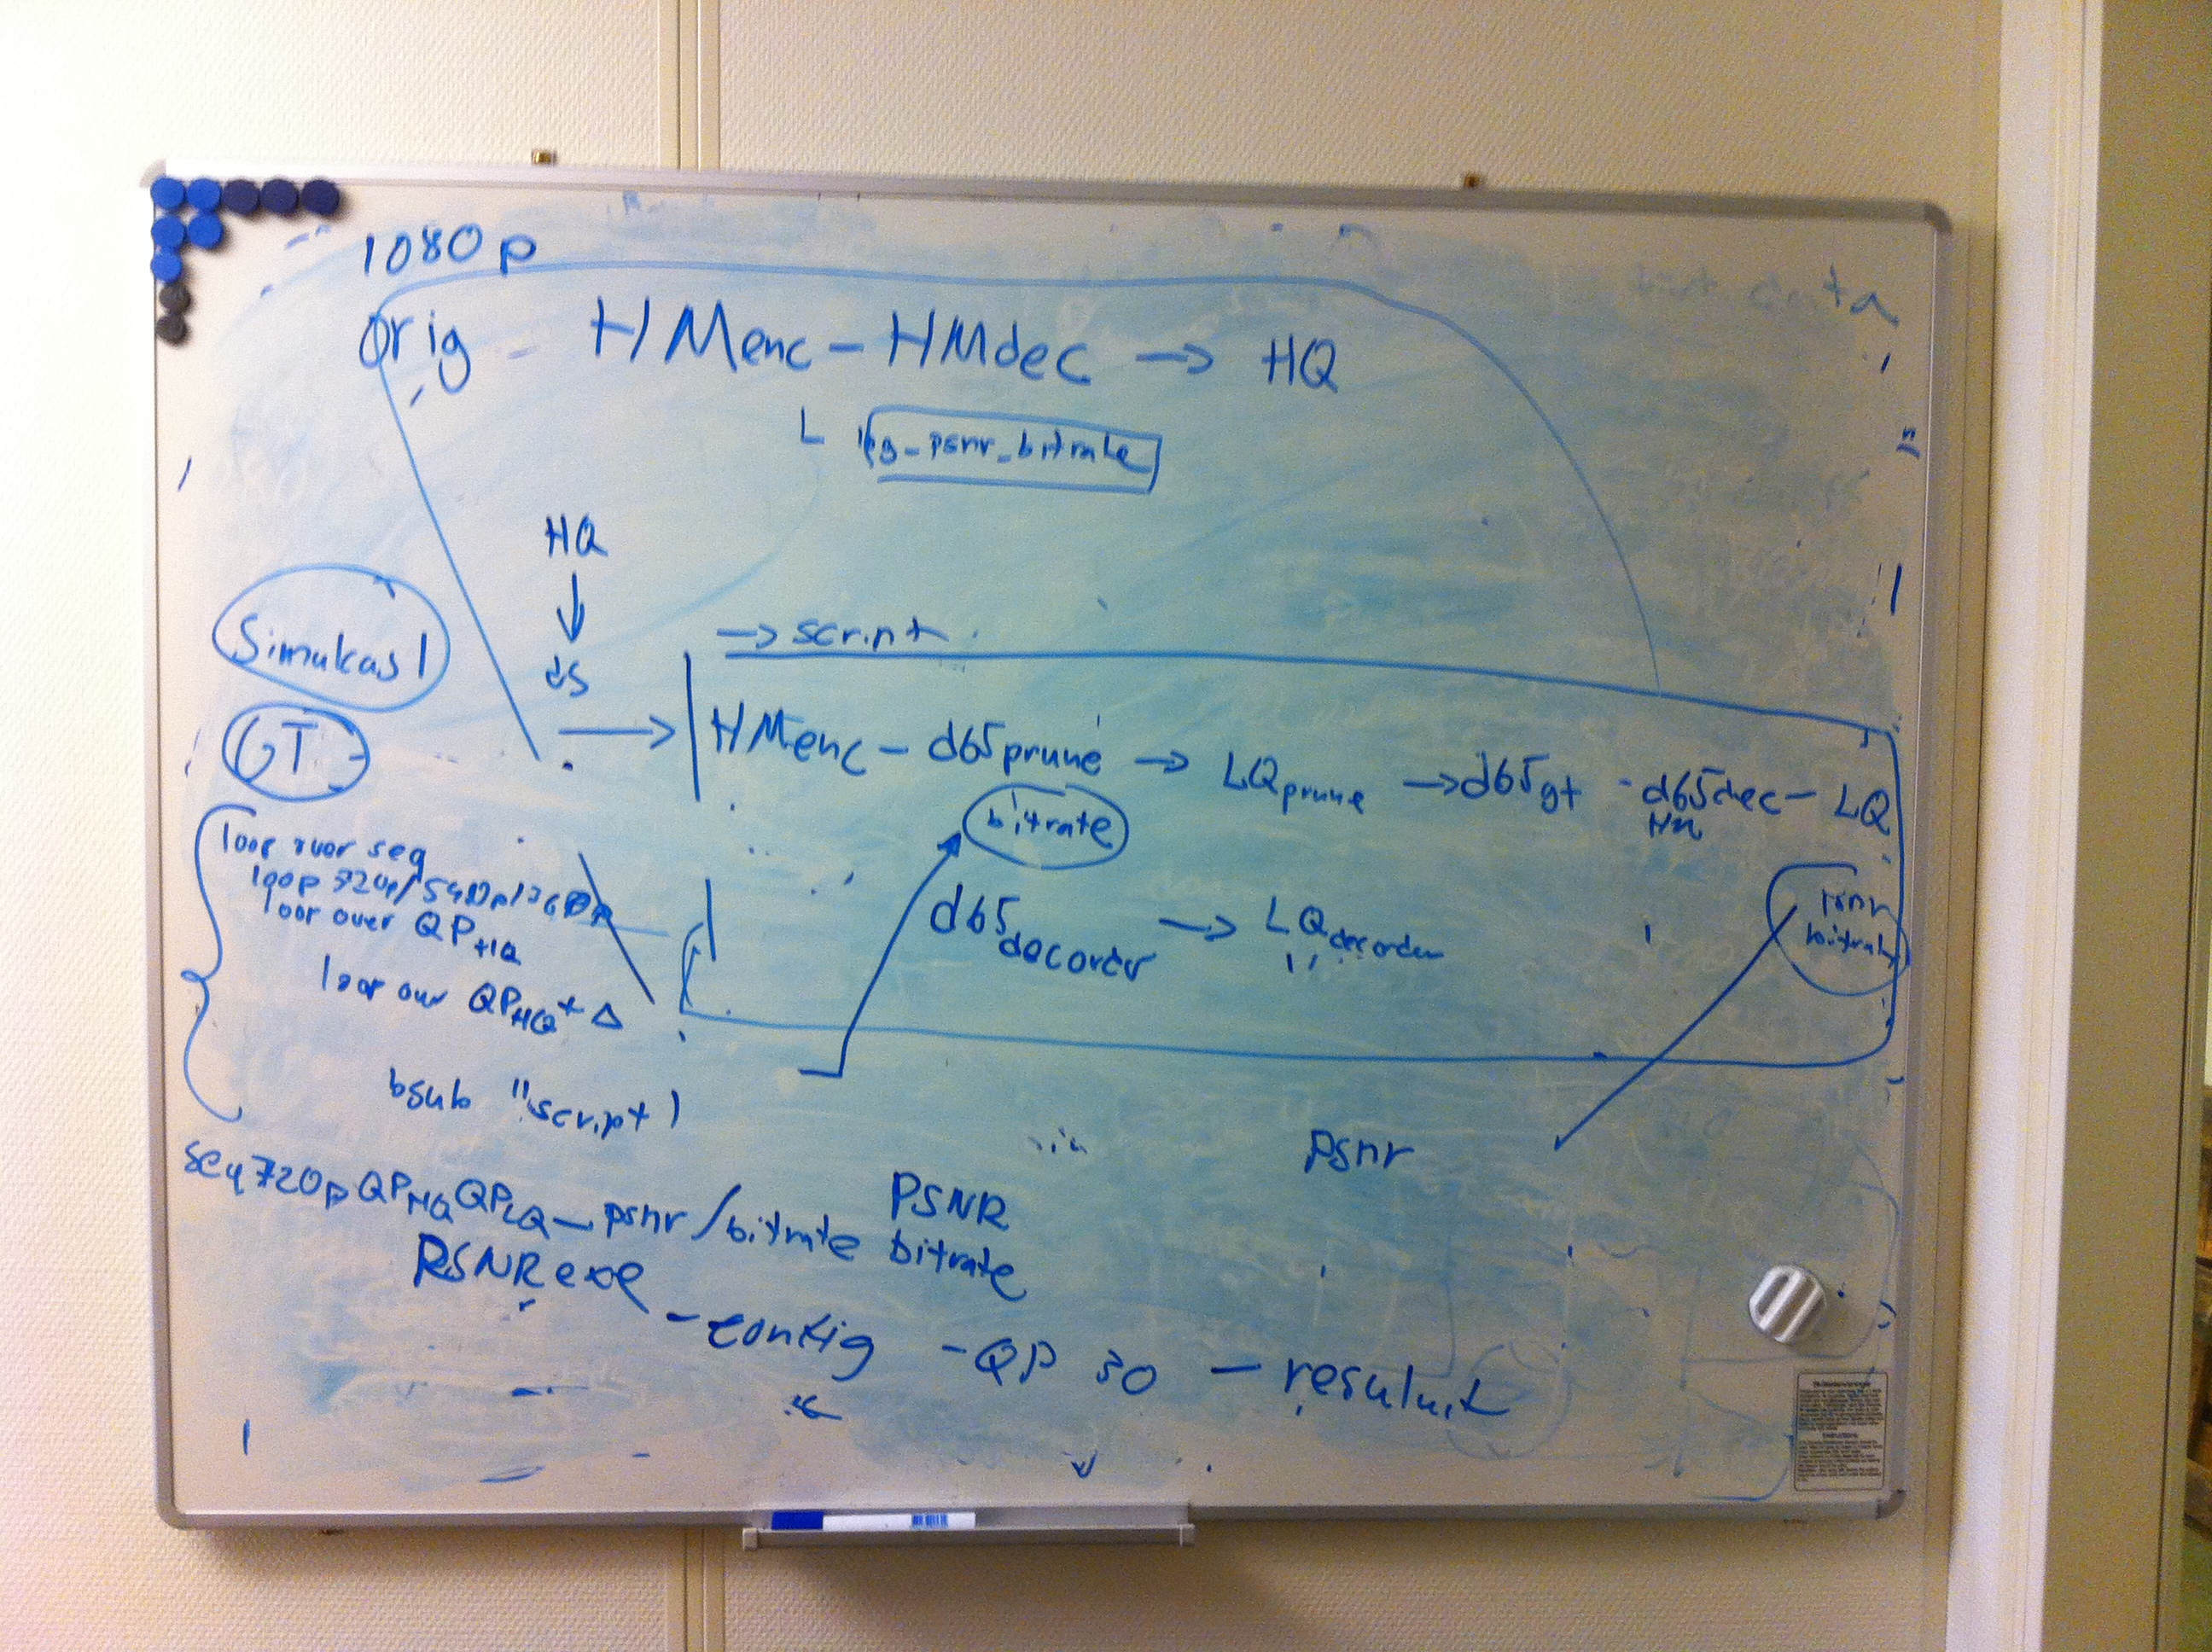 1080p
orig - HMenc - HMdec → HQ
psnr_bitrate
HQ
↓
ds
Simulcast
GT
→ script
→ HMenc - d65prune → LQprune → d65gt - d65dec - LQ
HM
bitrate
psnr
bitrate
d65decorder → LQdecorder
loop over seq
loop 720p/540p/360p
loop over QPHQ
loop over QPHQ + Δ
bsub "script)
psnr
seq720pQPHQQPLQ_psnr/bitrate
PSNR
bitrate
PSNRexe -config -QP 30 -